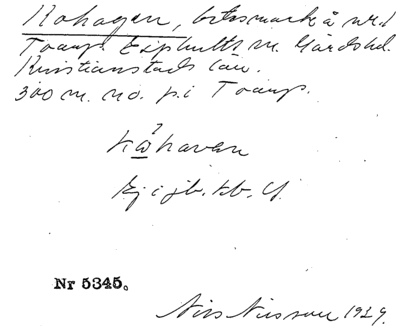 Kohagen, betesmark å nr 1
Toarp Esphults sn. Gärds hd.
Kristianstads län.
300 m. no. p. i Toarp.
Ej i jb. kb.
Nr 5345.
Nils Nilsson 1929.